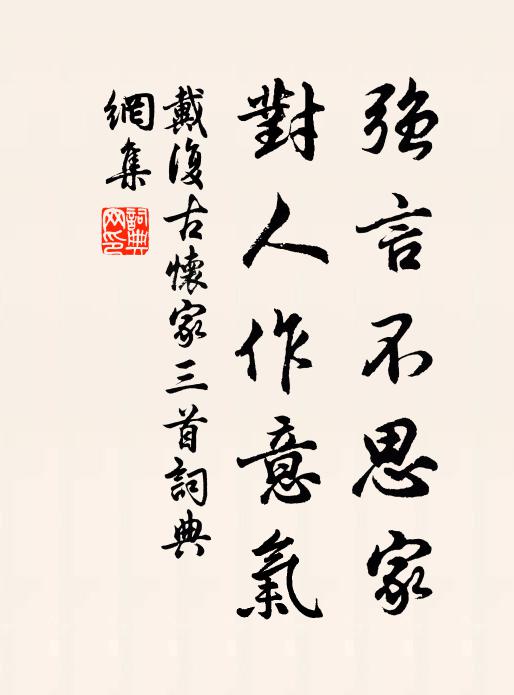 強言不思家
對人作意氣
戴復古懷家三首詞典
網集
詞典
網印